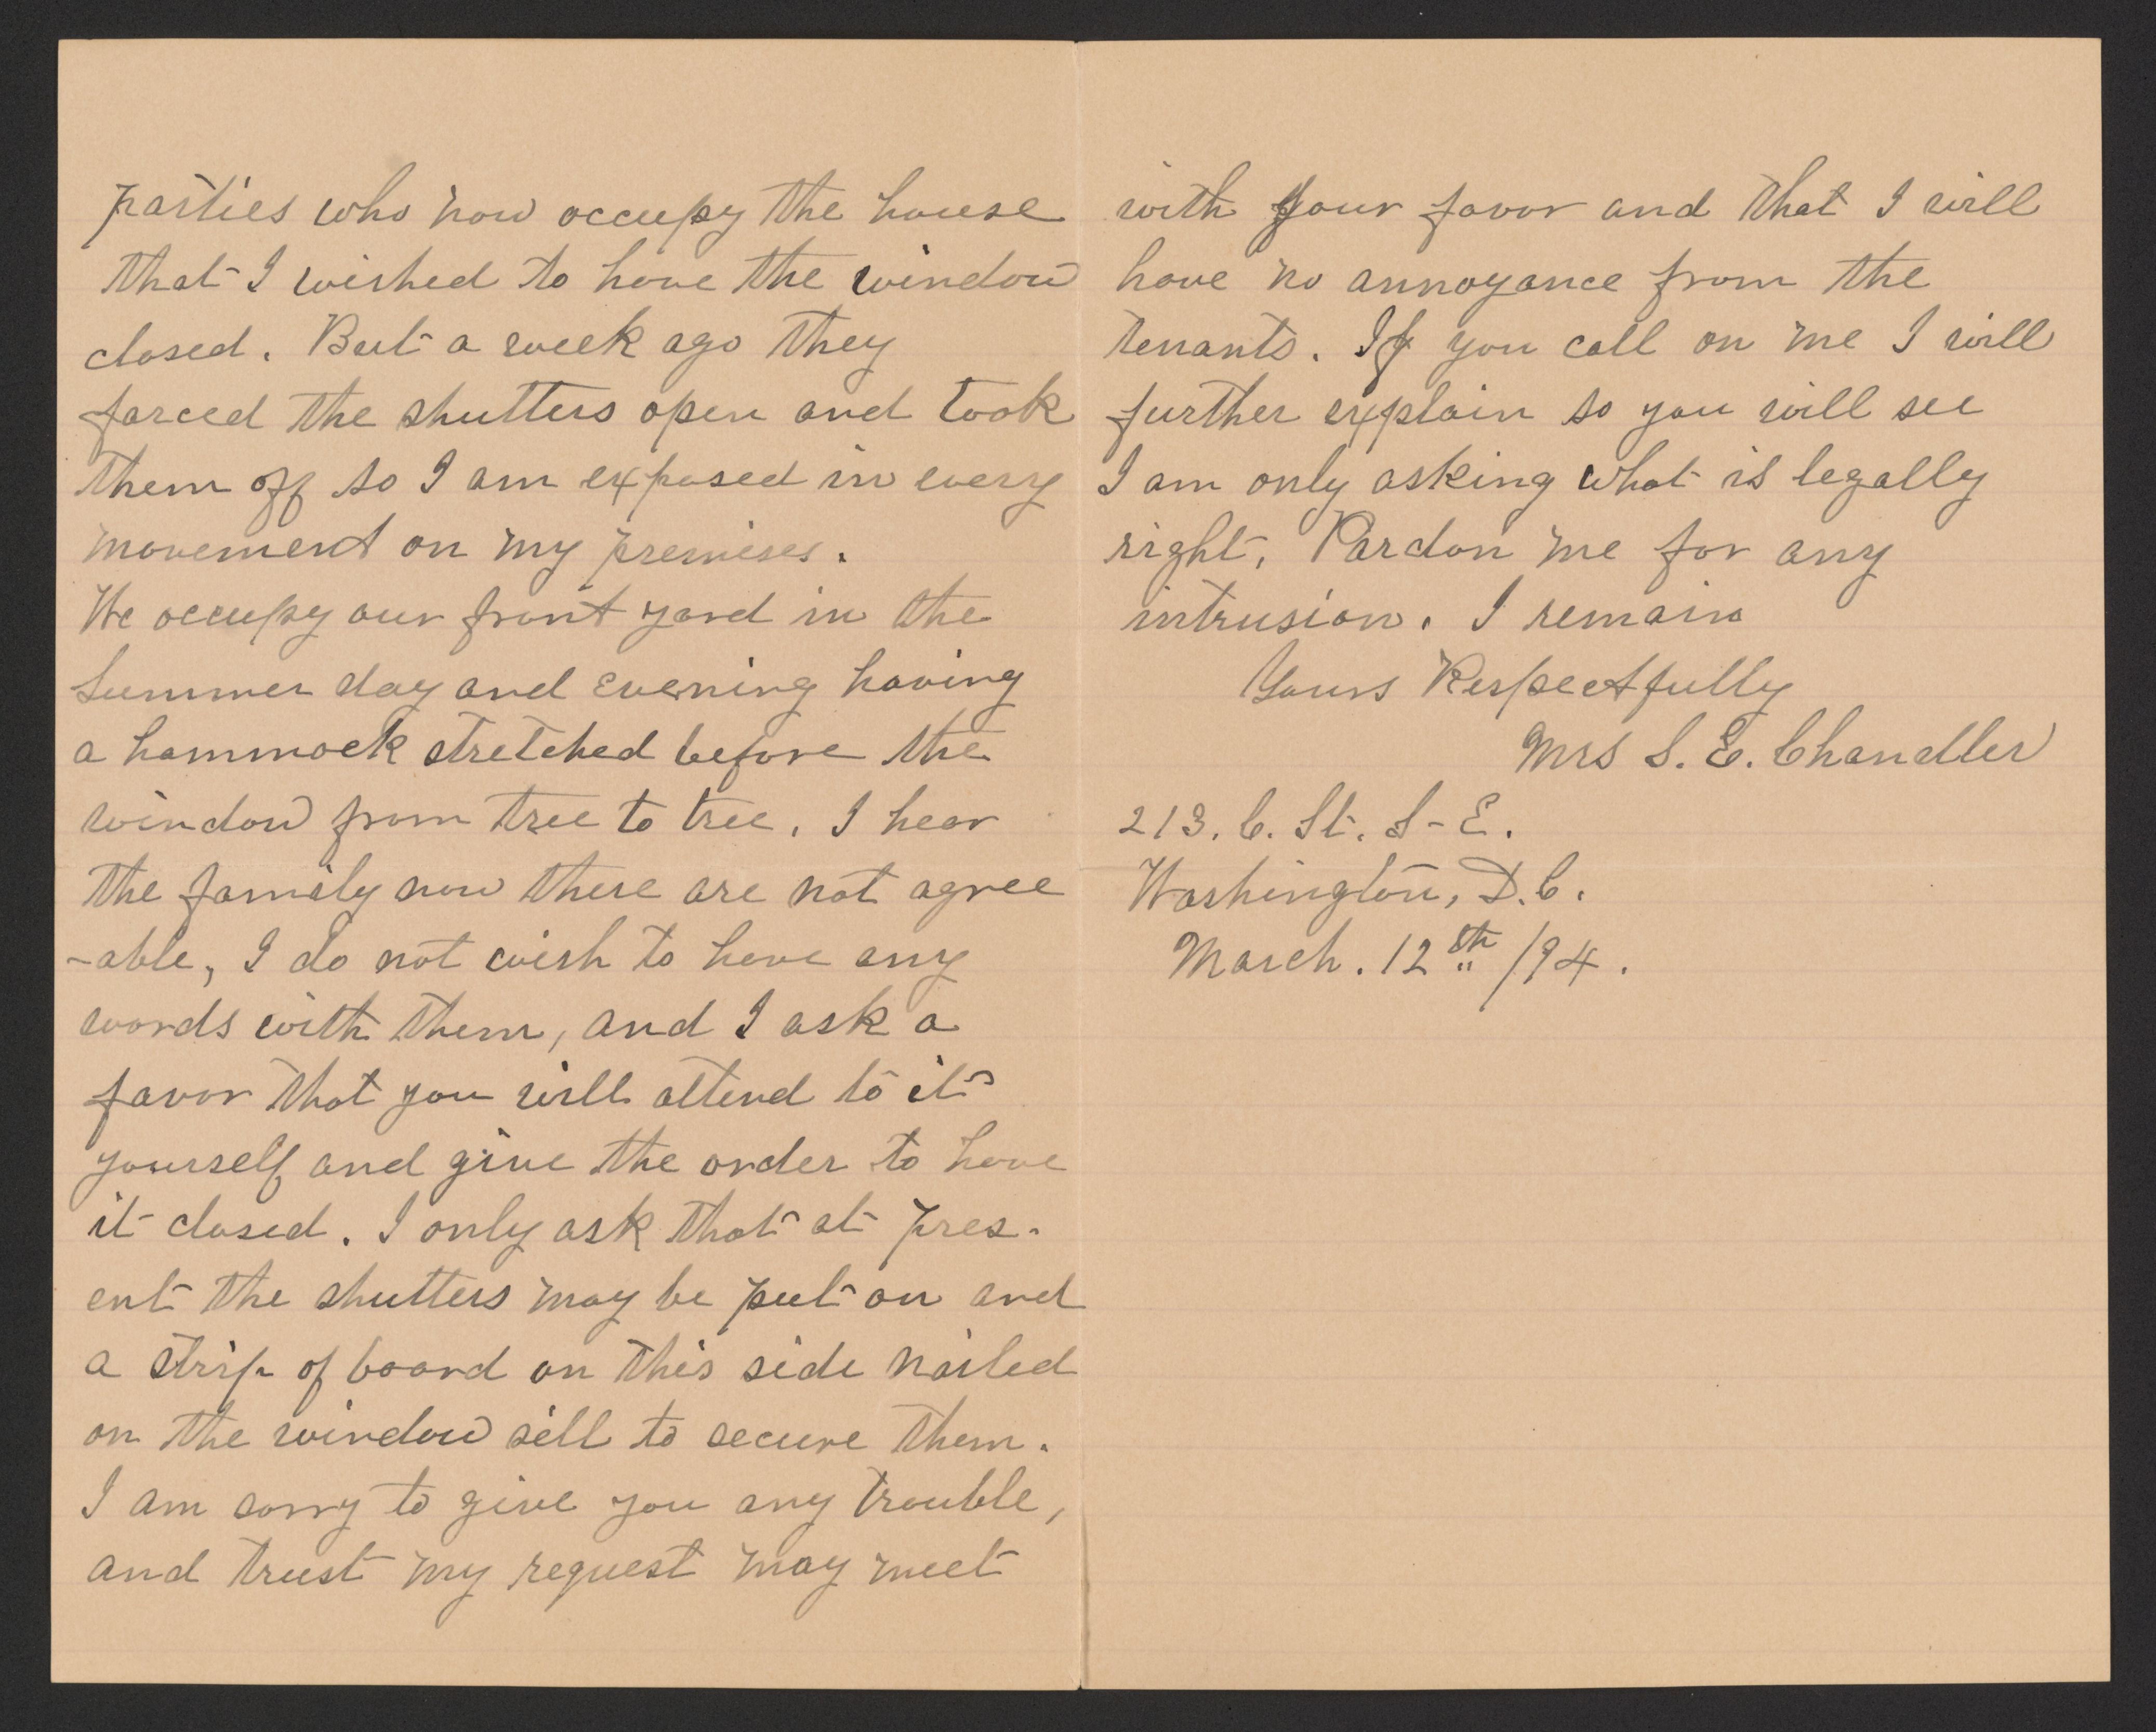 parties who now occupy the house
that I wished to have the window
closed. But a week ago they
forced the shutters open and took
them off so I am exposed in every
movement on my premises.
We occupy our front yard in the
Summer day and evening having
a hammock stretched before the
window from tree to tree. I hear
the family now there are not agree
-able, I do not wish to have any
words with them, and I ask a
favor that you will attend to it
yourself and give the order to have
it closed. I only ask that at pres-
ent the shutters may be put on and
a strip of board on this side nailed
on the window sill to secure them.
I am sorry to give you any trouble,
and trust my request may meet
with your favor and that I will
have no annoyance from the
tenants. If you call on me I will
further explain so you will see
I am only asking what is legally
right. Pardon me for any
intrusion. I remain
Yours Respectfully
Mrs S. E. Chandler
213. C. St. S-E.
Washington, D.C.
March. 12th /94.